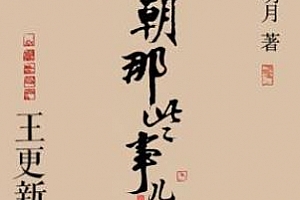 明月 著
朝那些事儿
王更新